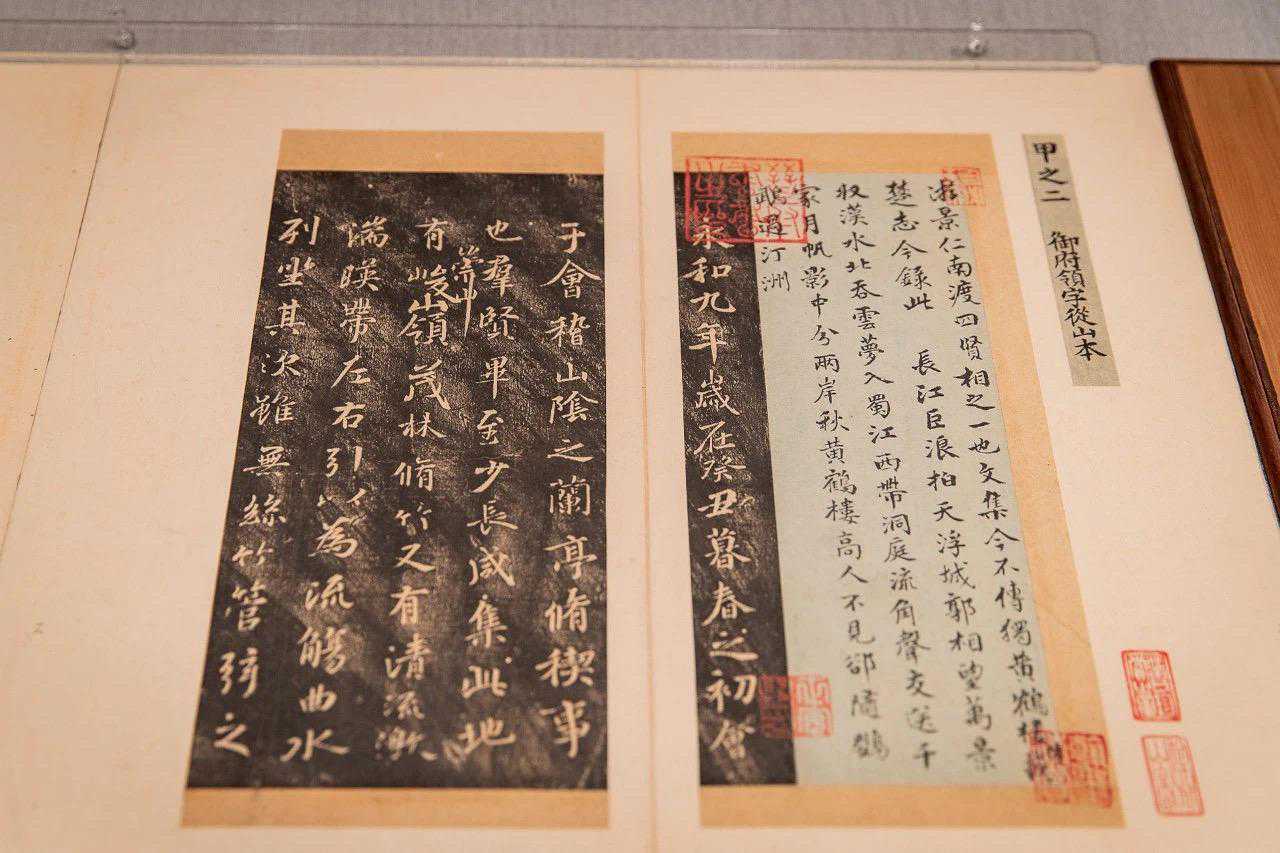 甲之二 御府領字從山本
游景仁南渡四賢相之一也文集今不傳獨黃鶴樓
楚志今錄此 長江巨浪拍天浮城郭相望萬景
收漢水北吞雲夢入蜀江西帶洞庭流角聲交送千
家月帆影中分兩岸秋黃鶴樓高人不見卻隨鸚
鵡過汀洲
永和九年歲在癸丑暮春之初會
于會稽山陰之蘭亭脩稧事
也羣賢畢至少長咸集此地
有峻領茂林脩竹又有清流激
崇山
湍暎帶左右引以為流觴曲水
列坐其次雖無絲竹管弦之